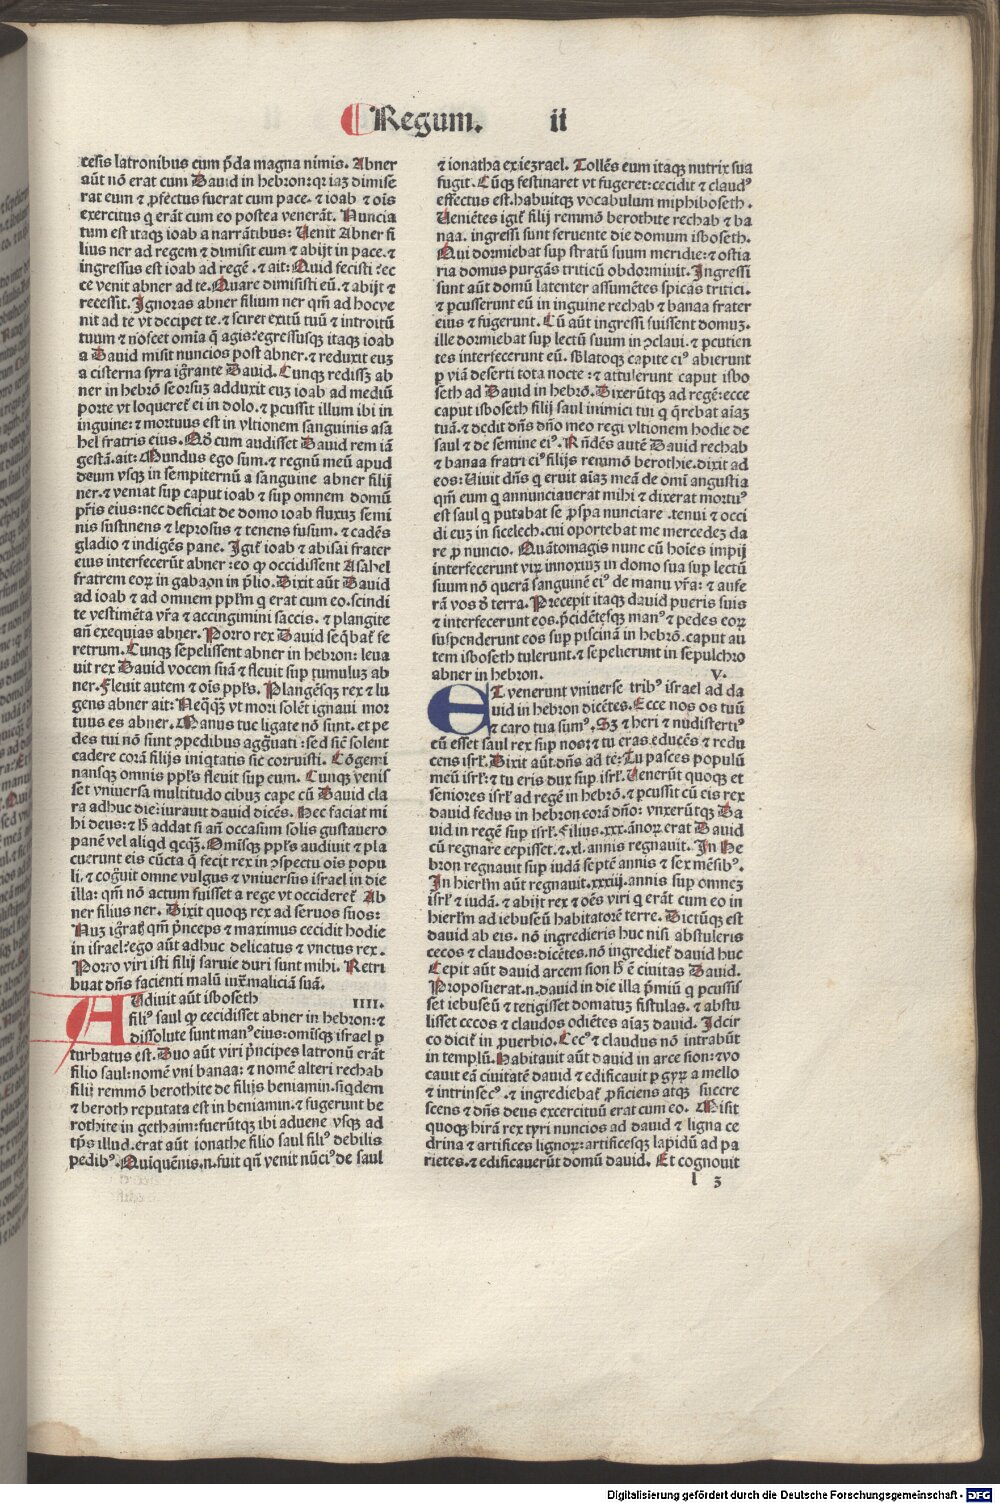 Regum. ii
cesis latronibus cum p̄da magna nimis. Abner
aūt nō erat cum Dauid in hebron: qꝛ iaꝫ dimise
rat eum ⁊ ꝓfectus fuerat cum pace. ⁊ ioab ⁊ oīs
exercitus q̄ erāt cum eo postea venerāt. Nuncia
tum est itaqꝫ ioab a narrātibus: Uenit Abner fi
lius ner ad regem ⁊ dimisit eum ⁊ abijt in pace. ⁊
ingressus est ioab ad regē. ⁊ ait: Quid fecisti? ec
ce venit abner ad te. Quare dimisisti eū. ⁊ abijt ⁊
recessit. Ignoras abner filium ner qm̄ ad hoc ve
nit ad te vt decipet te. ⁊ sciret exitū tuū ⁊ introitū
tuum ⁊ noscet omīa q̄ agis? egressusqꝫ itaqꝫ ioab
a Dauid misit nuncios post abner. ⁊ reduxit euꝫ
a cisterna syra igrante Dauid. Cunqꝫ redissꝫ ab
ner in hebrō seorsuꝫ adduxit euꝫ ioab ad mediū
porte vt loqueret̄ ei in dolo. ⁊ ꝑcussit illum ibi in
inguine: ⁊ mortuus est in vltionem sanguinis asa
hel fratris eius. Qd̄ cum audisset Dauid rem iā
gestā. ait: Mundus ego sum. ⁊ regnū meū apud
deum vsqꝫ in sempiternū a sanguine abner filij
ner. ⁊ veniat sup caput ioab ⁊ sup omnem domū
pr̄is eius: nec deficiat de domo ioab fluxuꝫ semi
nis sustinens ⁊ leprosus ⁊ tenens fusum. ⁊ cadēs
gladio ⁊ indigēs pane. Igit̄ ioab ⁊ abisai frater
eius interfecerūt abner: eo ꝙ occidissent Asahel
fratrem eoꝝ in gabaon in p̄lio. Dixit aūt Dauid
ad ioab ⁊ ad omnem pplm̄ q̄ erat cum eo. scindi
te vestimēta vr̄a ⁊ accingimini saccis. ⁊ plangite
añ exequias abner. Porro rex Dauid seq̄bat̄ fe
retrum. Cunqꝫ sepelissent abner in hebron: leua
uit rex Dauid vocem suā ⁊ fleuit sup tumuluꝫ ab
ner. Fleuit autem ⁊ oīs ppls. Plangēsqꝫ rex ⁊ lu
gens abner ait: Neq̄qꝫ vt mori solēt ignaui mor
tuus es abner. Manus tue ligate nō sunt. et pe
des tui nō sunt ꝯpedibus aggrauati: sed sic̄ solent
cadere corā filijs iniqtatis sic corruisti. Cōgemi
nansqꝫ omnis ppls fleuit sup eum. Cunqꝫ venis
set vniuersa multitudo cibuꝫ cape cū Dauid cla
ra adhuc die: iurauit dauid dicēs. Hec faciat mi
hi deus: ⁊ h̄ addat si añ occasum solis gustauero
panē vel aliqd qcqꝫ. Omīsqꝫ ppls audiuit ⁊ pla
cuerunt eis cūcta q̄ fecit rex in ꝯspectu oīs popu
li. ⁊ cogūit omne vulgus ⁊ vniuersus israel in die
illa: qm̄ nō actum fuisset a rege vt occideret̄ Ab
ner filius ner. Dixit quoqꝫ rex ad seruos suos:
Nuꝫ igrat̄ qm̄ p̄nceps ⁊ maximus cecidit hodie
in israel: ego aūt adhuc delicatus ⁊ vnctus rex.
Porro viri isti filij saruie duri sunt mihi. Retri
buat dn̄s facienti malū iuxꝫ maliciā suā.
Udiuit aūt isboseth IIII.
filiꝰ saul ꝙ cecidisset abner in hebron: ⁊
dissolute sunt manꝰ eius: omīsqꝫ israel ꝑ
turbatus est. Duo aūt viri p̄ncipes latronū erāt
filio saul: nomē vni banaa: ⁊ nomē alteri rechab
filij remmō berothite de filijs beniamin. siqdem
⁊ beroth reputata est in beniamin. ⁊ fugerunt be
rothite in gethaim: fuerūtqꝫ ibi aduene vsqꝫ ad
tp̄s illud. erat aūt ionathe filio saul filiꝰ debilis
pedibꝰ. Quiquēnis. n. fuit qn̄ venit nūciꝰ de saul
⁊ ionatha ex ieꝫrael. Tollēs eum itaqꝫ nutrix sua
fugit. Cūqꝫ festinaret vt fugeret: cecidit ⁊ claudꝰ
effectus est. habuitqꝫ vocabulum miphiboseth.
Ueniētes igit̄ filij remmō berothite rechab ⁊ ba
naa. ingressi sunt feruente die domum isboseth.
Qui dormiebat sup stratū suum meridie: ⁊ ostia
ria domus purgās triticū obdormiuit. Ingressi
sunt aūt domū latenter assumētes spicas tritici.
⁊ ꝑcusserunt eū in inguine rechab ⁊ banaa frater
eius ⁊ fugerunt. Cū aūt ingressi fuissent domuꝫ.
ille dormiebat sup lectū suum in ꝯclaui. ⁊ ꝑcutien
tes interfecerunt eū. sblatoqꝫ capite eiꝰ abierunt
ꝑ viā deserti tota nocte: ⁊ attulerunt caput isbo
seth ad Dauid in hebrō. Dixerūtqꝫ ad regē: ecce
caput isboseth filij saul inimici tui q̄ q̄rebat aīaꝫ
tuā. ⁊ dedit dn̄s dn̄o meo regi vltionem hodie de
saul ⁊ de semine eiꝰ. Rn̄dēs autē Dauid rechab
⁊ banaa fratri eiꝰ filijs remmō berothie. dixit ad
eos: Uiuit dn̄s q̄ eruit aīaꝫ meā de omī angustia
qm̄ eum q̄ annunciauerat mihi ⁊ dixerat mortuꝰ
est saul q̄ putabat se ꝓspa nunciare. tenui ⁊ occi
di euꝫ in sicelech. cui oportebat me mercedeꝫ da
re ꝓ nuncio. Quātomagis nunc cū hoīes impij
interfecerunt viꝝ innoxiuꝫ in domo sua sup lectū
suum nō querā sanguinē eiꝰ de manu vr̄a: ⁊ aufe
rā vos d̄ terra. Precepit itaqꝫ dauid pueris suis
⁊ interfecerunt eos. p̄cidētesqꝫ manꝰ ⁊ pedes eoꝝ
suspenderunt eos sup piscinā in hebrō. caput au
tem isboseth tulerunt. ⁊ sepelierunt in sepulchro
abner in hebron. V.
ET venerunt vniuerse tribꝰ israel ad da
uid in hebron dicētes. Ecce nos os tuū
⁊ caro tua sumꝰ. Sꝫ ⁊ heri ⁊ nudistertiꝰ
cū esset saul rex sup nos: ⁊ tu eras educēs ⁊ redu
cens isrl̄. Dixit aūt dn̄s ad te: Tu pasces populū
meū isrl̄: ⁊ tu eris dux sup isrl̄. Uenerūt quoqꝫ et
seniores isrl̄ ad regē in hebrō. ⁊ ꝑcussit cū eis rex
dauid fedus in hebron corā dn̄o: vnxerūtqꝫ Da
uid in regē sup isrl̄. Filius. xxx. ānoꝝ erat Dauid
cū regnare cepisset. ⁊. xl. annis regnauit. In He
bron regnauit sup iudā septē annis ⁊ sex mēsibꝰ.
In hierlm̄ aūt regnauit. xxxiij. annis sup omneꝫ
isrl̄ ⁊ iudā. ⁊ abijt rex ⁊ oēs viri q̄ erāt cum eo in
hierlm̄ ad iebuseū habitatorē terre. Dictūqꝫ est
dauid ab eis. nō ingredieris huc nisi abstuleris
cecos ⁊ claudos: dicētes. nō ingrediet̄ dauid huc
Cepit aūt dauid arcem sion h̄ ē ciuitas Dauid.
Proposuerat. n. dauid in die illa p̄miū q̄ ꝑcussis
set iebuseū ⁊ tetigisset domatuꝫ fistulas. ⁊ abstu
lisset cecos ⁊ claudos odiētes aīaꝫ dauid. Idcir
co dicit̄ in ꝓuerbio. Cecꝰ ⁊ claudus nō intrabūt
in templū. Habitauit aūt dauid in arce sion: ⁊ vo
cauit eā ciuitatē dauid ⁊ edificauit ꝑ gyꝝ a mello
⁊ intrinsecꝰ. ⁊ ingrediebat̄ ꝓficiens atqꝫ succre
scens ⁊ dn̄s deus exercituū erat cum eo. Misit
quoqꝫ hirā rex tyri nuncios ad dauid ⁊ ligna ce
drina ⁊ artifices lignoꝝ: artificesqꝫ lapidū ad pa
rietes. ⁊ edificauerūt domū dauid. Et cognouit
l 3
Digitalisierung gefördert durch die Deutsche Forschungsgemeinschaft - DFG